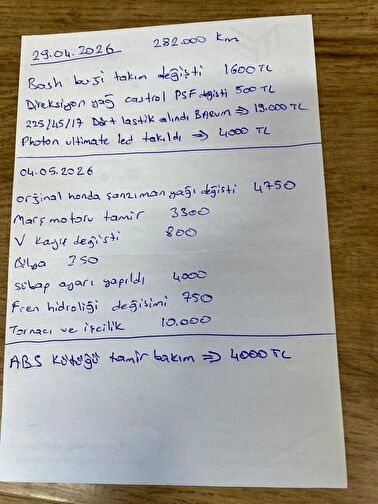 29.04.2026 282.000 Km
Bosh buji takım değişti 1600 TL
Direksiyon yağ castrol PSF değişti 500 TL
225/45/17 Dört lastik alındı BARUM => 19.000 TL
Photon ultimate led takıldı => 4000 TL
04.05.2026
orjinal honda şanzıman yağı değişti 4750
Marş motoru tamir 3300
V kayış değişti 800
Bilya 350
sübap ayarı yapıldı 4000
Fren hidroliği değişimi 750
Tornacı ve işcilik 10.000
ABS kütüğü tamir bakım => 4000 TL